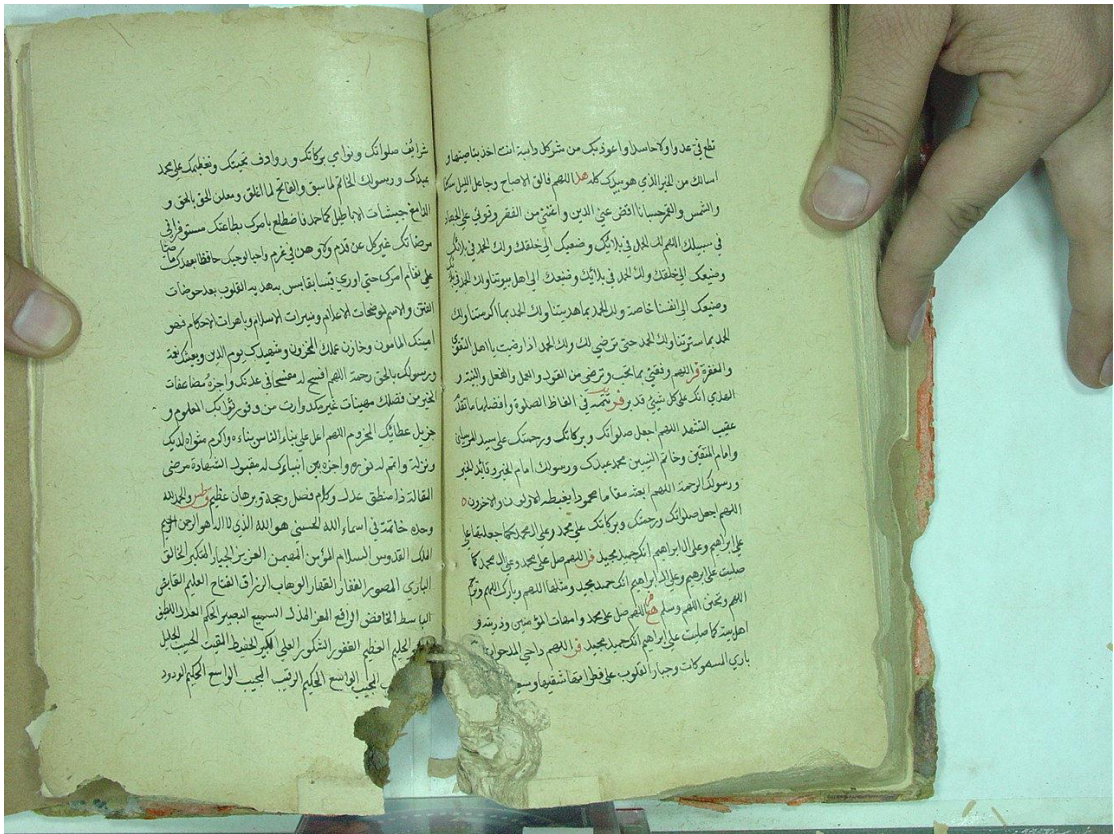 تطع في عدوا ولا حاسدا واعوذ بك من شر كل دابة انت اخذ بناصيتها و
اسالك من الخير الذي هو بيدك كله هد اللهم فالق الاصباح وجاعل الليل سكنا
والشمس والقمر حسبانا اقض عني الدين واغنني من الفقر وقوني على الجهاد
في سبيلك اللهم لك الحمد في بلائك وصنيعك الى خلقك ولك الحمد في بلائك
وصنيعك الى خلقك ولك الحمد في بلائك وصنيعك الى اهل بيوتنا ولك الحمد في
وصنيعك الى انفسنا خاصة ولك الحمد بما هديتنا ولك الحمد بما اكرمتنا ولك
الحمد بما سترتنا ولك الحمد حتى ترضى لك ولك الحمد اذا رضيت يا اهل التقوى
والمغفرة فر اللهم وفقني بما تحب وترضى من القول والعمل والفعل والنية و
الهدي انك على كل شيئ قدير في الفاظ الصلوة وافضلها ما تقدم
عقيب التشهد اللهم اجعل صلواتك وبركاتك ورحمتك على سيد المرسلين
وامام المتقين وخاتم النبيين محمد عبدك ورسولك امام الخير وقائد الخير
ورسولك الرحمة اللهم ابعثه مقاما محمودا يغبطه الاولون والاخرون
اللهم اجعل صلواتك ورحمتك وبركاتك على محمد وعلى ال محمد كما جعلتها على
ابراهيم وعلى ال ابراهيم انك حميد مجيد اللهم صل على محمد وعلى ال محمد كما
صليت على ابرهيم وعلى ال ابراهيم انك حميد مجيد ومثلها اللهم وبارك اللهم وترحم
اللهم وتحنن اللهم وسلم اللهم صل على محمد وامهات المؤمنين وذريته و
اهل بيته كما صليت على ابراهيم انك حميد مجيد اللهم داحي المدحوات
باري المسموكات وجبار القلوب على فطراتها شقيها وسع
شرايف صلواتك ونوامي بركاتك وروادف تحيتك وتعظيمك على محمد
عبدك ورسولك الخاتم لما سبق والفاتح لما اغلق ومعلن الحق بالحق و
الدامغ جيشات الاباطيل كما حمل فاضطلع بامرك بطاعتك مستوفزا في
مرضاتك غير نكل عن قدم ولا وهن في عزم واعيا لوحيك حافظا لعهدك ماضيا
على نفاذ امرك حتى اورى قبسا لقابس به هديه القلوب بعد خوضات
الفتن والاثم لموضحات الاعلام ونيرات الاسلام وباهرات الاحكام فهو
امينك المامون وخازن علمك المخزون وشهيدك يوم الدين وبعيثك نعمة
ورسولك بالحق رحمة اللهم افسح له مفسحا في عدنك واجزه مضاعفات
الخير من فضلك مهنيات غير مكدرات من وفور ثوابك المعلوم و
جزيل عطائك المخزوم اللهم اعل على بناء الناس بناءه واكرم مثواه لديك
ونزله واتمم له نوره واجزه من انبعاثك له مقبول الشهادة مرضي
المقالة ذا منطق عدل وكلام فصل وحجة وبرهان عظيم والحمد لله
وحده خاتمة في اسماء الله الحسنى هو الله الذي لا اله الا هو الرحمن الرحيم
الملك القدوس السلام المؤمن المهيمن العزيز الجبار المتكبر الخالق
الباري المصور الغفار القهار الوهاب الرزاق الفتاح العليم القابض
الباسط الخافض الرافع المعز المذل السميع البصير الحكم العدل اللطيف
الحليم العظيم الغفور الشكور العلي الكبير الحفيظ المقيت الحسيب الجليل
المجيب الواسع الحكيم الرقيب المجيب الواسع الحكيم الودود